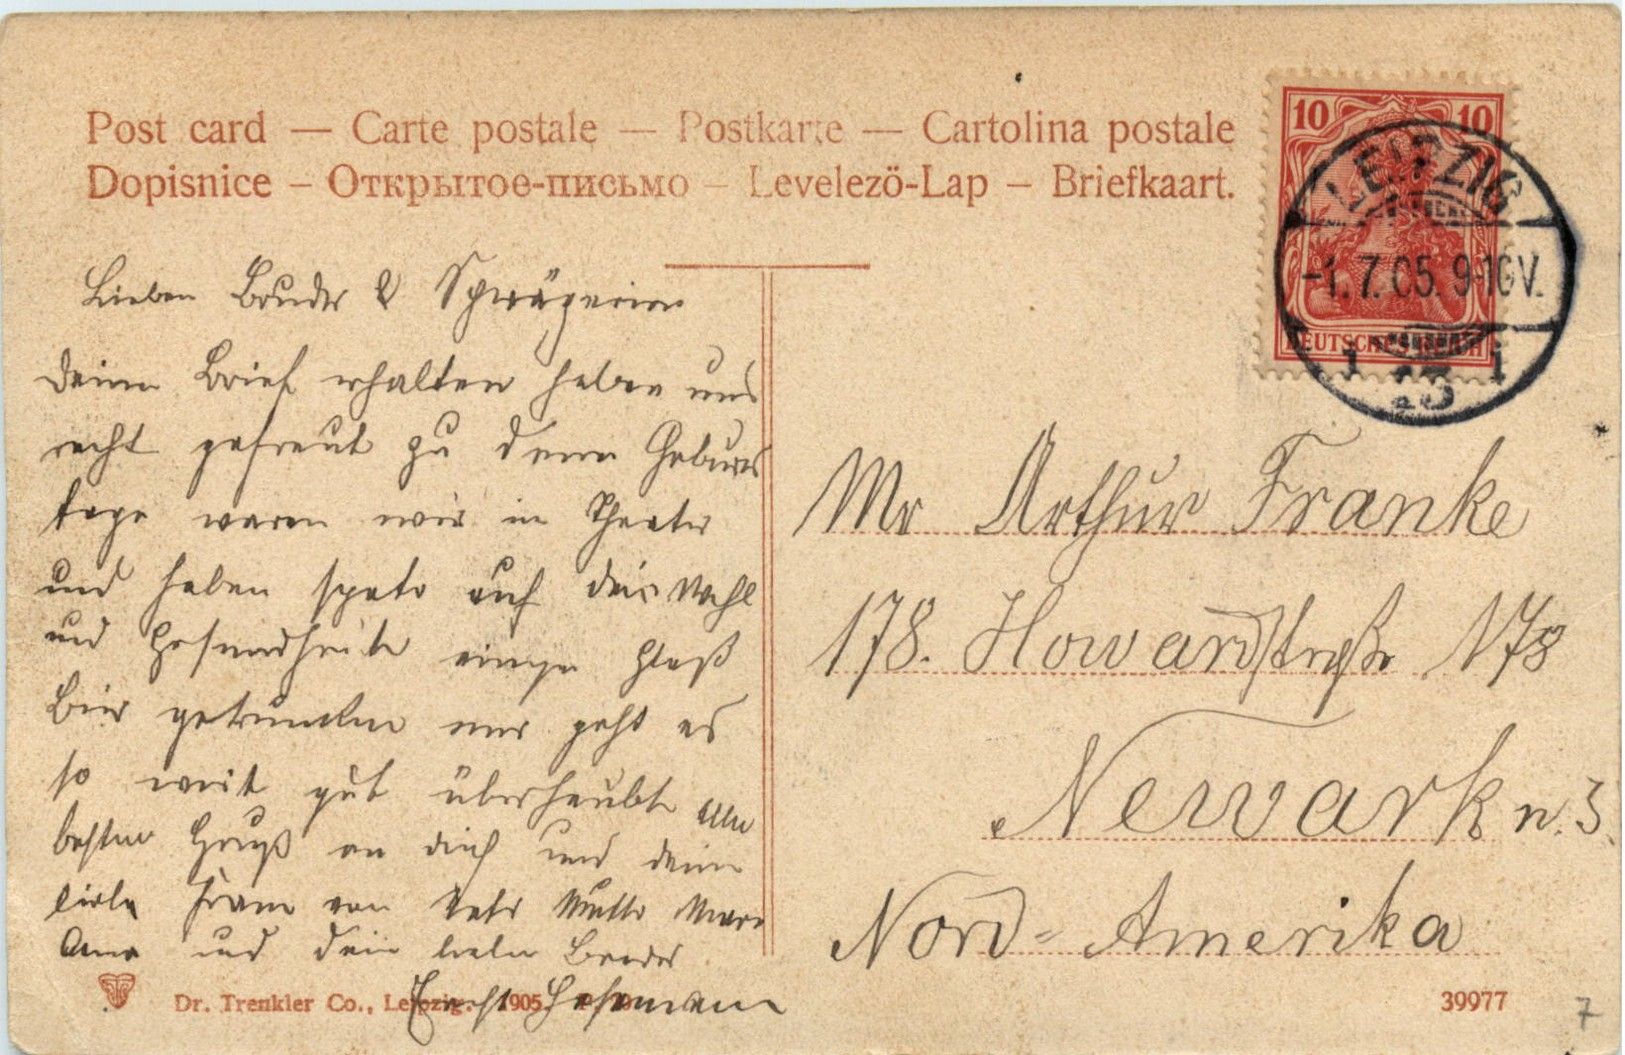 Post card — Carte postale — Postkarte — Cartolina postale
Dopisnice — Открытое-письмо — Levelező-Lap — Briefkaart.
10 10
DEUTSCHES REICH
LEIPZIG
-1.7.05. 9-10V.
13
Lieben Bruder & Schwägerin
deinen Brief erhalten haben uns
recht gefreut zu deim Geburts
tage waren wir in Theater
und haben spater auf dein Wohl
und Gesundheit einige Glaß
Bier getrunken mir geht es
so weit gut überhaubt alle
besten Gruß an dich und deine
liebe Frau von Vater Mutter
und dein lieber Bruder
Mr Arthur Franke
178. Howardstraße 178
Newark n. J.
Nord-Amerika
Dr. Trenkler Co., Leipzig. 1905.
39977
7